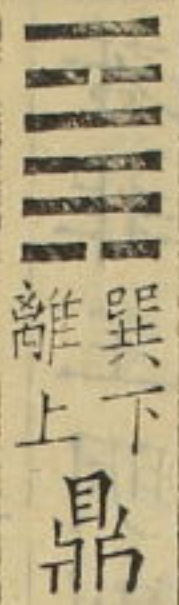 巽下
離上
鼎